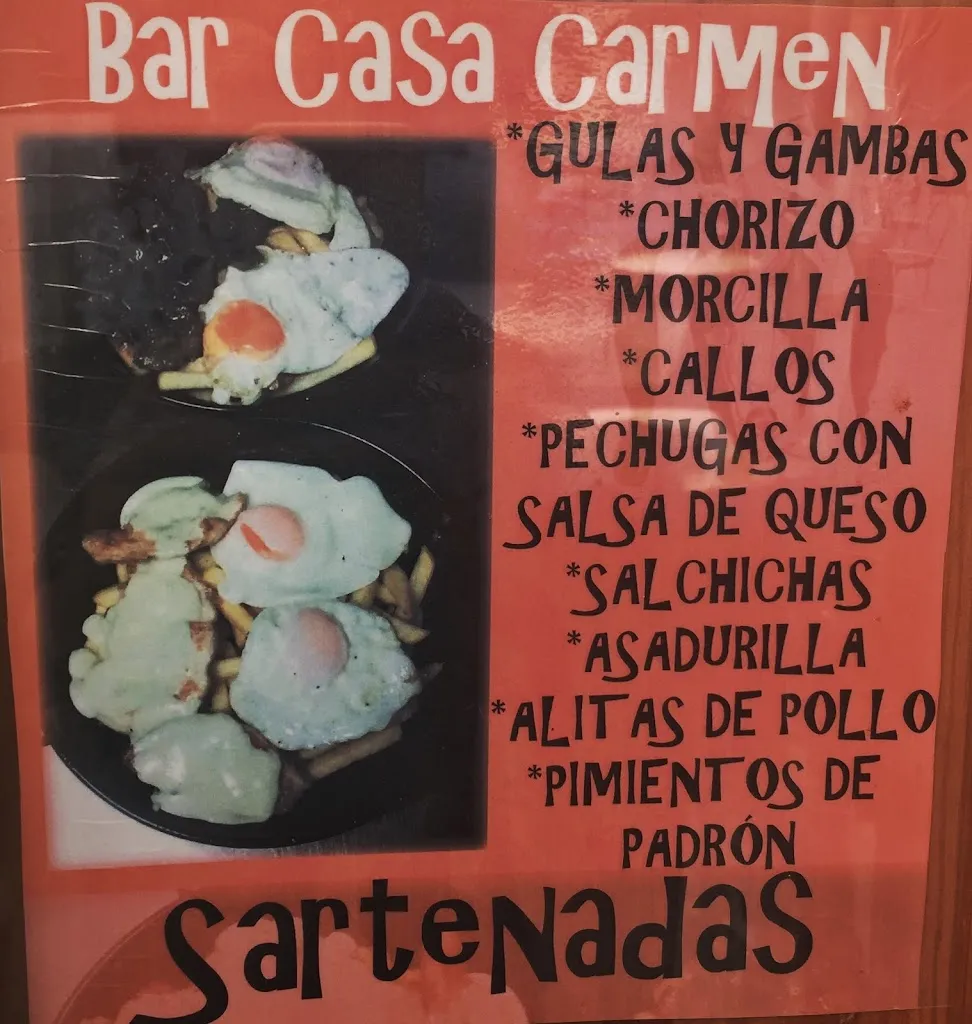 Bar Casa Carmen
*GULAS Y GAMBAS
*CHORIZO
*MORCILLA
*CALLOS
*PECHUGAS CON
SALSA DE QUESO
*SALCHICHAS
*ASADURILLA
*ALITAS DE POLLO
*PIMIENTOS DE
PADRÓN
Sartenadas